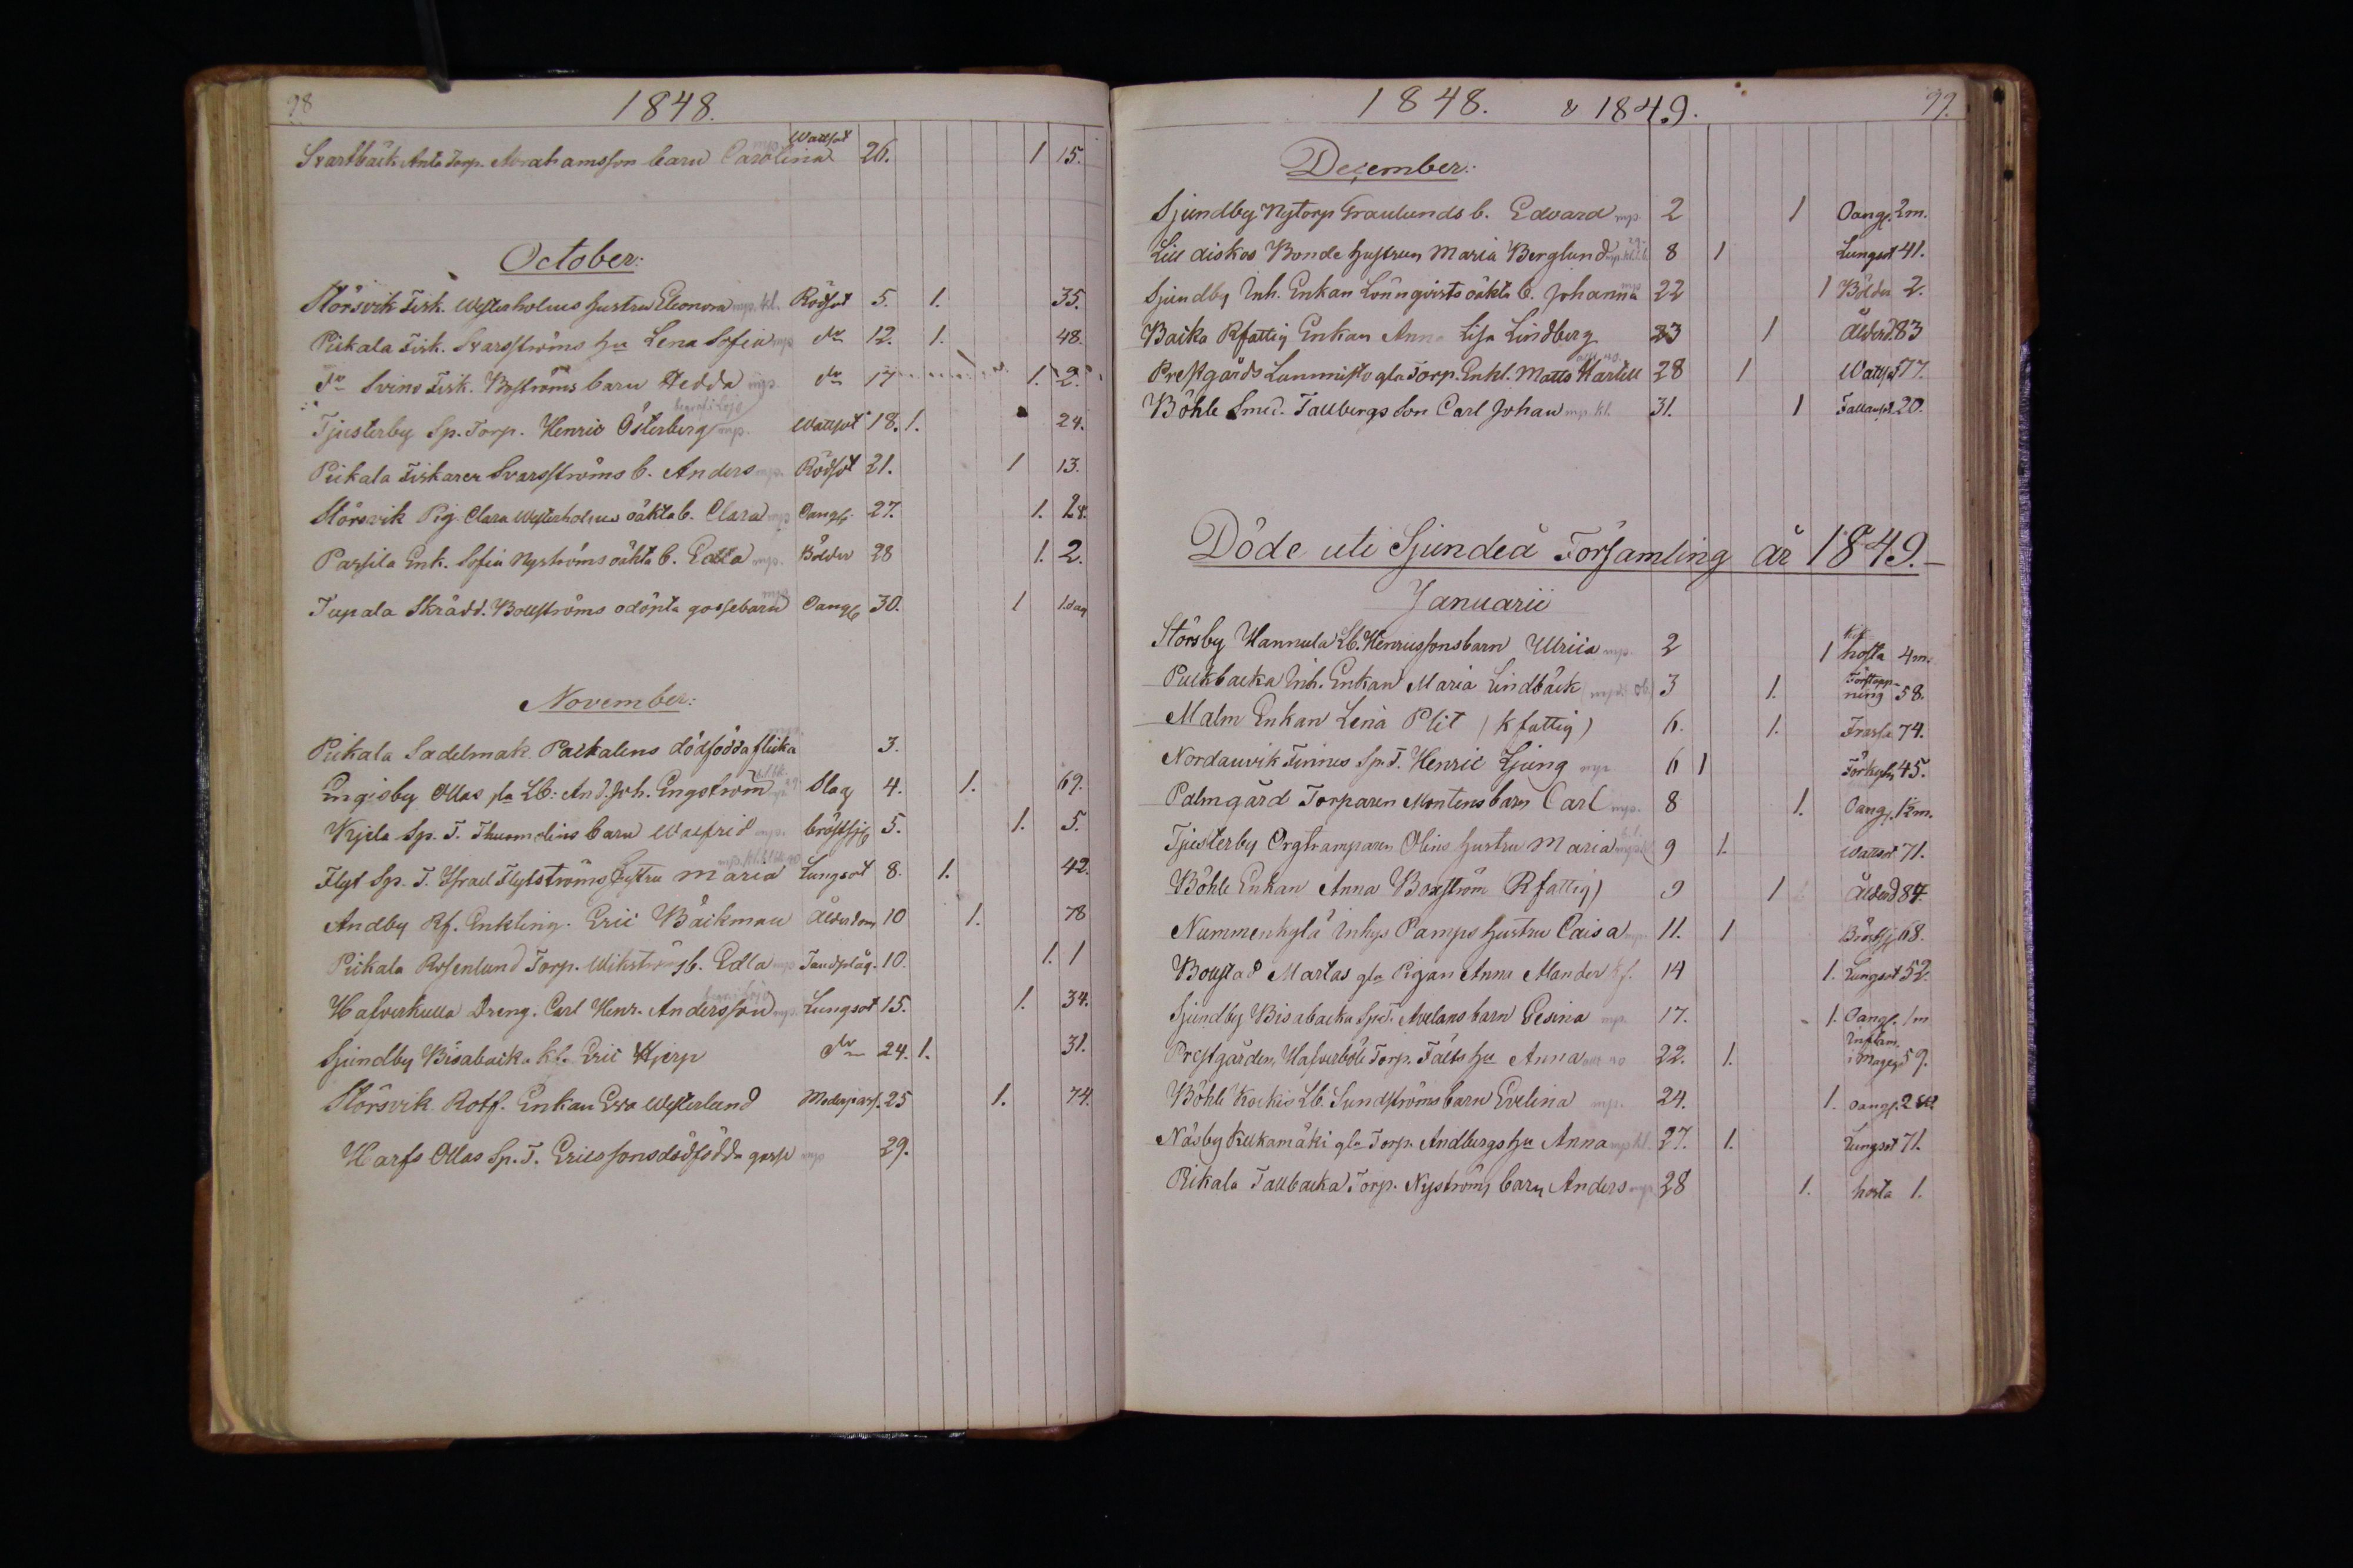 98
1848.
Svartbäck Ants Torp. Abrahamsson barn Carolina mp. Wattsot 26. 1 15.
October:
Störsvik Fisk. Westerholms hustru Eleonora mp. kl. Rödsot 5. 1. 35.
Pikala Fisk. Svarsströms hu Lena Sofia mp d:o 12. 1. 48.
d:o Svinö Fisk. Boströms barn Hedda mp. d:o 17 1. 2.
Tjusterby Sp. Torp. Henric Österberg mp. begrof. i Lojo Wattsot 18. 1. 24.
Pikala Fiskaren Svarsströms b. Anders mp. Rödsot 21. 1 13.
Störsvik Pig. Clara Westerholms oäkta b. Clara mp Oangf. 27. 1. 2
Parsila Enk. Sofia Nyströms oäkta b. Edla mp. Bölder 28 1. 2.
Tupala Skrädd. Bollströms odöpta gossebarn mp. Oangf 30. 1 1.dag
November:
Pikala Sadelmak. Paekalens dödfödda flicka 3.
Engisby Ollas fla Lb: And. Joh. Engström Slag 4. 1. 69.
Wrjela Sp. T. Thuomelins barn Walfrid mp. bröstsj 5. 1. 5.
Flyt Sp. T. Israel Flytströms hustru Maria Lungsot 8. 1. 42.
Andby Rf. Enkling. Eric Bäckman Ålderdom 10 1. 78
Pikala Rosenlund Torp. Wikströms b. Edla mp Tandplåg. 10. 1. 1
Hafverkulla Dreng. Carl Henr. Andersson mp. Lungsot 15. 1. 34.
Sjundby Bisabacka Kl. Eric Hjerp d:o 24. 1. 31.
Störsvik Rotf. Enkan Eva Westerlund Moderpass. 25 1. 74.
Harfs Ollas Sp. T. Ericssons dödfödda gosse mp 29.
1848. & 1849. 99.
December:
Sjundby Nytorp Graulunds b. Edvard mp. 2 1 Oangf. 2m.
Lill diskos Bonde hustrun Maria Berglund 8 1 Lungsot 41.
Sjundby Inh. Enkan Lönnqvists oäkta b. Johanna mp 22 1 Bölder 2.
Backa Rfattig Enkan Anna Lisa Lindberg 23 1 Ålderd 83
Prestgårds Lammisto gla Torp. Enkl. Matts Hartell 28 1 Wattsot 77.
Böhle Smed. Tallbergs Son Carl Johan mp. kl. 31. 1 Fallansot 20.
Döde uti Sjundeå Församling år 1849.
Januarii
Störsby Hannula Lb. Henricssons barn Ulrica mp. 2 1 Kik hosta 4m.
Puckbacka Inh. Enkan Maria Lindbäck 3 1. Förstopp-ning 58.
Malm Enkan Lena Plit (k fattig) 6. 1. Frossa 74.
Nordanvik Finnes Sp. T. Henric Ljung mp 6 1 Förkyln 45.
Palmgård Torparen Mortens barn Carl mp. 8 1. Oangf. 1½m.
Tjusterby Orgtramparen Olins hustru Maria 9 1. Wattsot 71.
Böhle Enkan Anna Boxström (Rfattig) 9 1 Ålderd 84.
Nummenkylä Inhys Pamps hustru Caisa mp. 11. 1 Bröstsj 68.
Bollstad Martas gla Pigan Anna Mander kf. 14 1. Lungsot 52.
Sjundby Bisabacka Sp. T. Avelans barn Gesina mp. 17. 1. Oangf. 1m
Prestgården, Hafverböle Torp. Fälts hu Anna 22. 1. Inflam. i Magen 59.
Böhle Kockis Lb. Sundströms barn Evelina mp. 24. 1. Oangf. 2
Näsby Kukamäki gla Torp. Andbergs hu Anna mp kl. 27. 1. Lungsot 71.
Pikala Tallbacka Torp. Nyströms barn Anders mp 28 1. hosta 1.